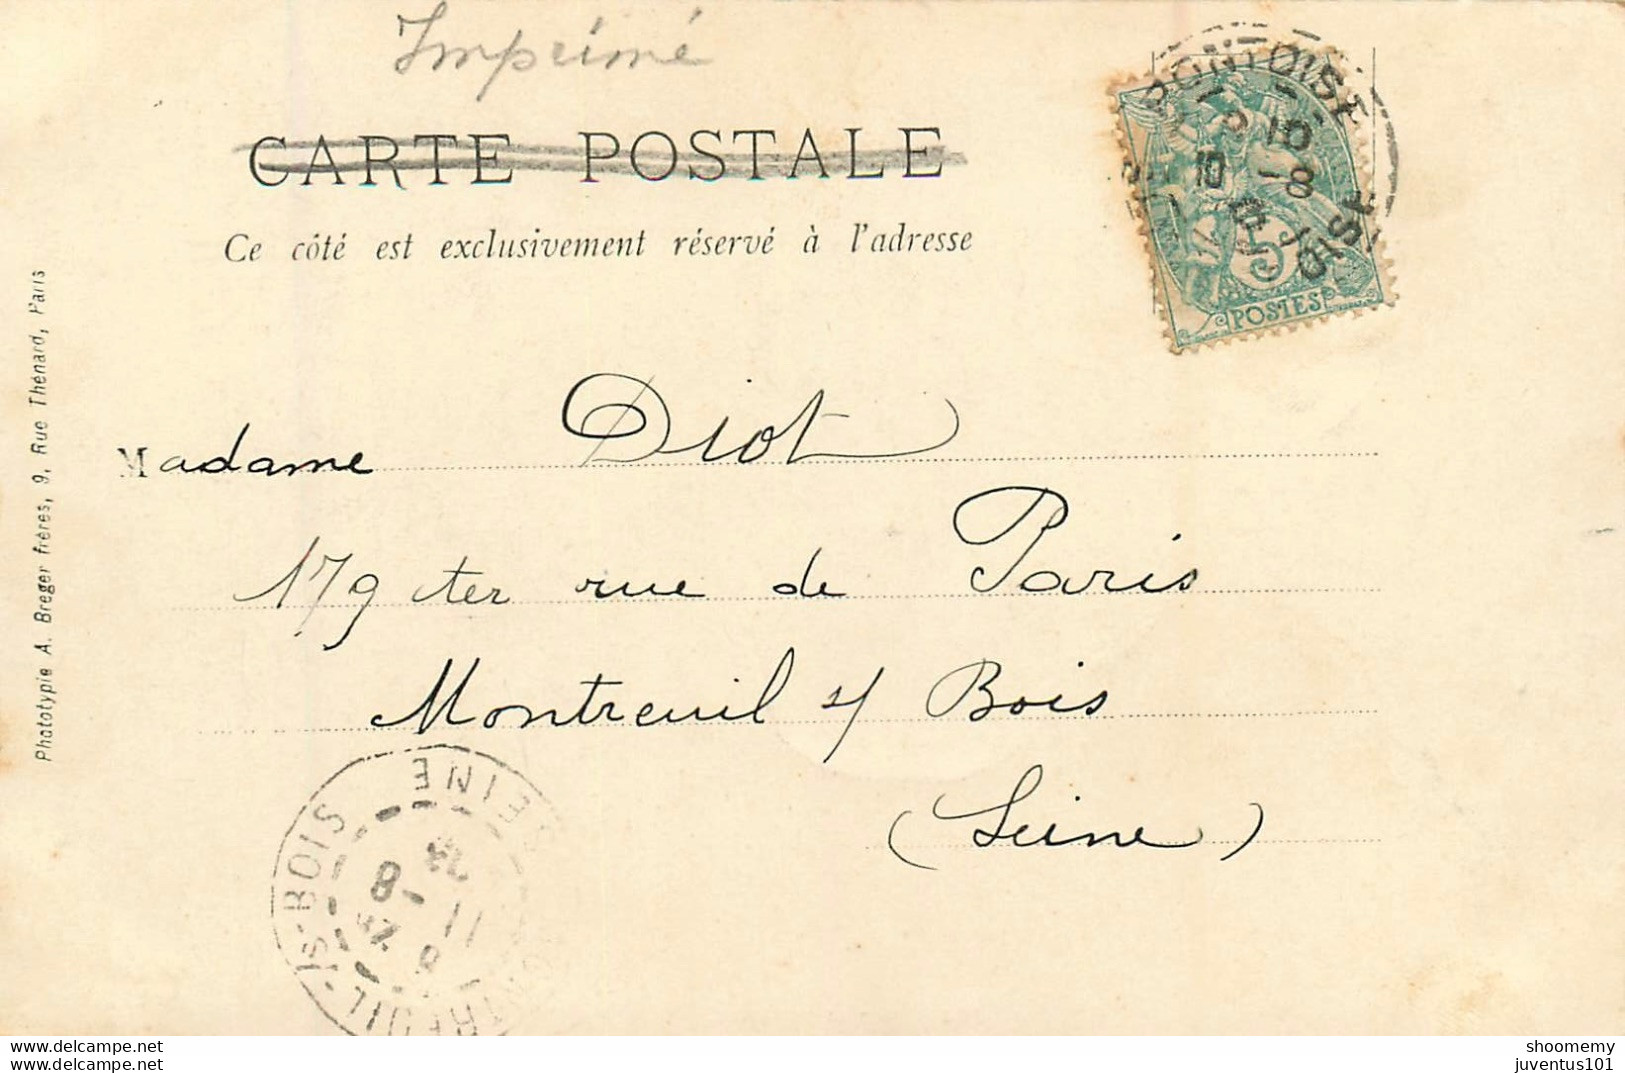 Imprimé
CARTE POSTALE
Ce côté est exclusivement réservé à l'adresse
PONTOISE
OISE
5
POSTES
Madame Diot
179 ter rue de Paris
Montreuil s/ Bois
(Seine)
Phototypie A. Breger frères, 9, Rue Thénard, Paris
SEINE
MONTREUIL-Is-BOIS
11
8
www.delcampe.net
shoomemy
juventus101